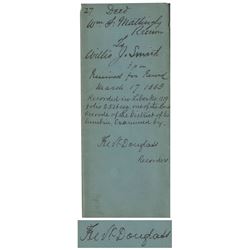 27 Deed
Wm H. Mattingly
To
Willis J. Smith
Received for Record
March 17 1883
Recorded in Liber No
folio et seq. one of the Land
Records of the District of Co
lumbia, Examined by.
Fredk Douglass
Recorder
Fredk Douglass